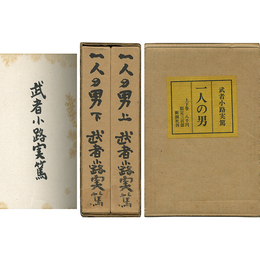 武者小路実篤
一人の男 下 武者小路実篤
一人の男 上 武者小路実篤
武者小路実篤
一人の男